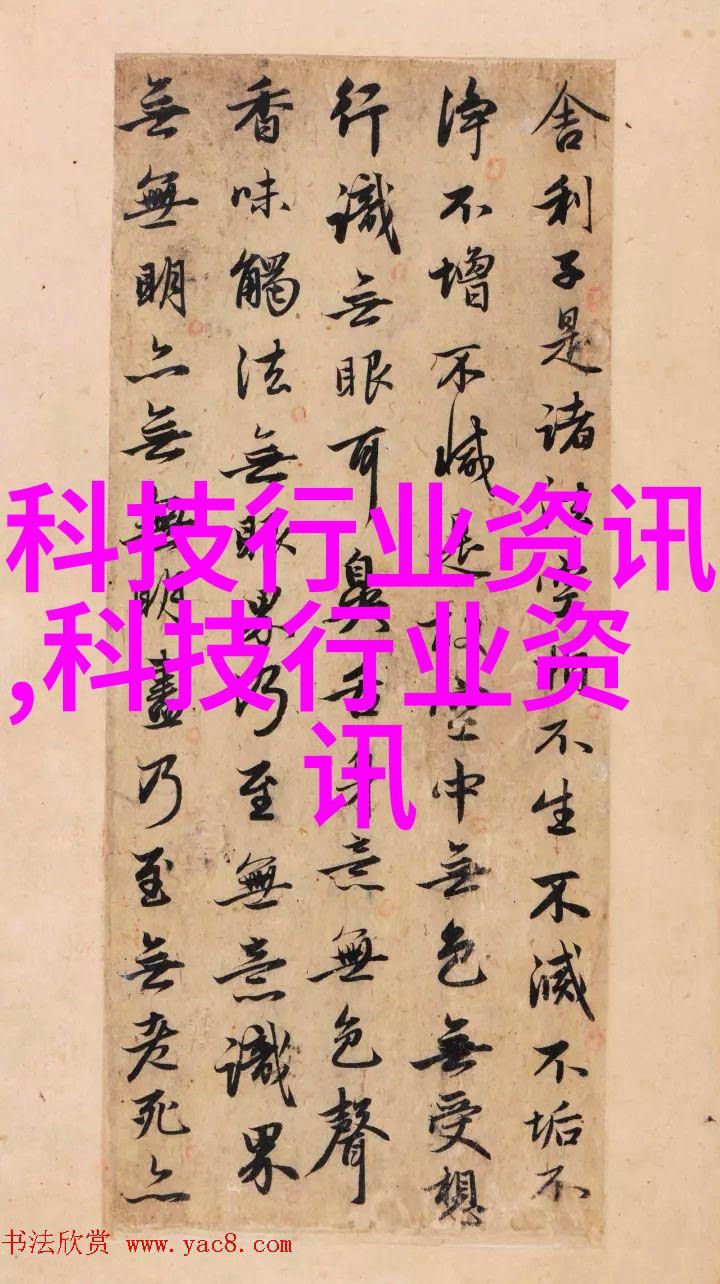 舍利子是諸法空相不生不滅不垢不
淨不增不減是故空中無色無受想
行識無眼耳鼻舌身意無色聲
香味觸法無眼界乃至無意識界
無無明亦無無明盡乃至無老死亦
科技行业资讯
,科技行业资
讯
书法欣赏 www.yac8.com